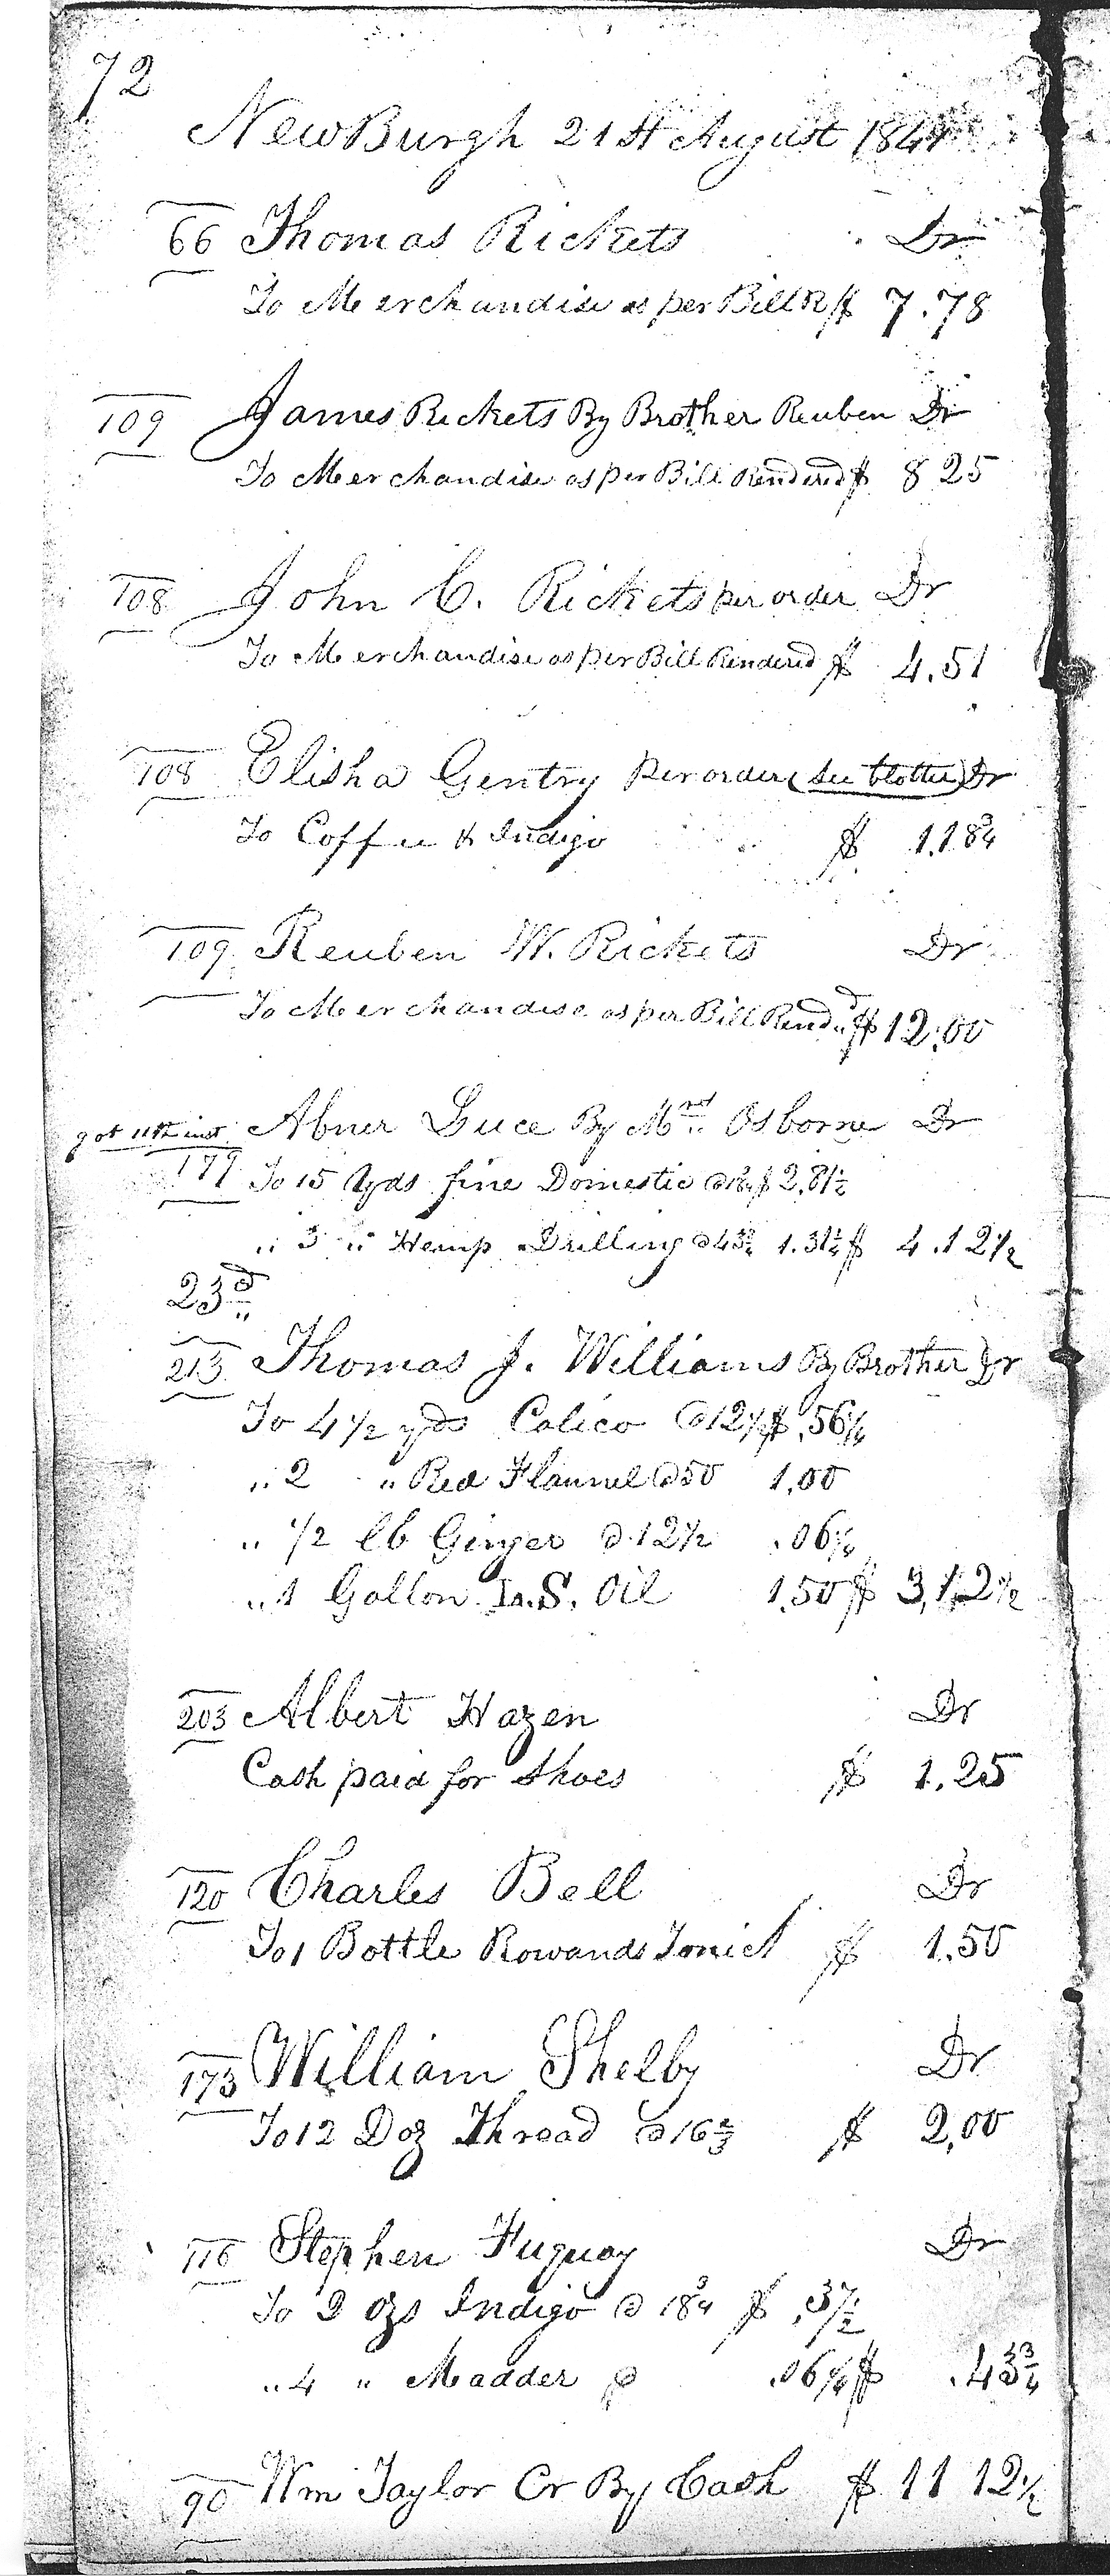 72
NewBurgh 21st August 1841
66 Thomas Rickets Dr
To Merchandise as per Bill R $ 7.78
109 James Rickets By Brother Reuben Dr
To Merchandise as per Bill Rendered $ 8 25
108 John C. Rickets per order Dr
To Merchandise as per Bill Rendered $ 4.51
108 Elisha Gentry Per order (See blotter) Dr
To Coffee & Indigo $ 1.18 3/4
109 Reuben W. Rickets Dr
To Merchandise as per Bill Rend,,d $ 12.00
got 11th inst. Abner Luce By Mrs Osborne Dr
179 To 15 Yds fine Domestic @ $ 2.81 1/2
,, 3 ,, Hemp Drilling @ 43 3/4 1.31 1/4 $ 4.12 1/2
23d
213 Thomas J. Williams By Brother Dr
To 4 1/2 yds Calico @ 12 1/2 $ .56 1/4
,, 2 ,, Red Flannel @ 50 1.00
,, 1/2 lb Ginger @ 12 1/2 .06 1/4
,, 1 Gallon L.S. Oil 1.50 $ 3,12 1/2
203 Albert Hazen Dr
Cash paid for Shoes $ 1.25
120 Charles Bell Dr
To 1 Bottle Rowands Tonick $ 1.50
173 William Shelby Dr
To 12 Doz Thread @ 16 2/3 $ 2,00
116 Stephen Fuquay Dr
To 2 ozs Indigo @ 18 3/4 $ .37 1/2
,, 4 ,, Madder @ .06 1/4 $ .43 3/4
90 Wm Taylor Cr By Cash $ 11 12 1/2